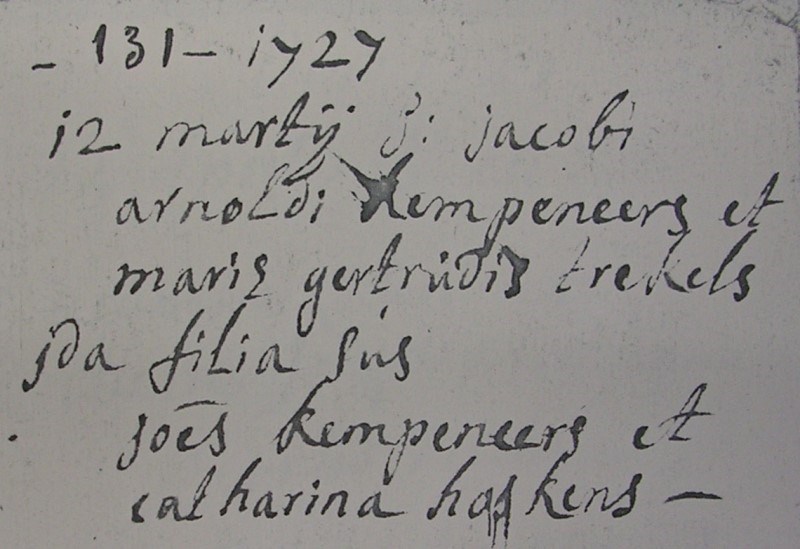 - 131 - 1727
12 martij S: jacobi
arnoldi Kempeneers et
mariæ gertrudis trekels
jda filia sus
joēs kempeneers et
catharina haskens -